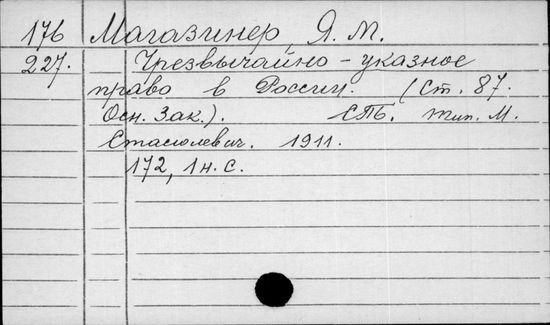 176 Магазинер, Я. М.
227. Чрезвычайно-указное
право в России. (Ст. 87.
Осн. Зак.). СПб. тип. М.
Стасюлевич. 1911.
172, 1 н. с.